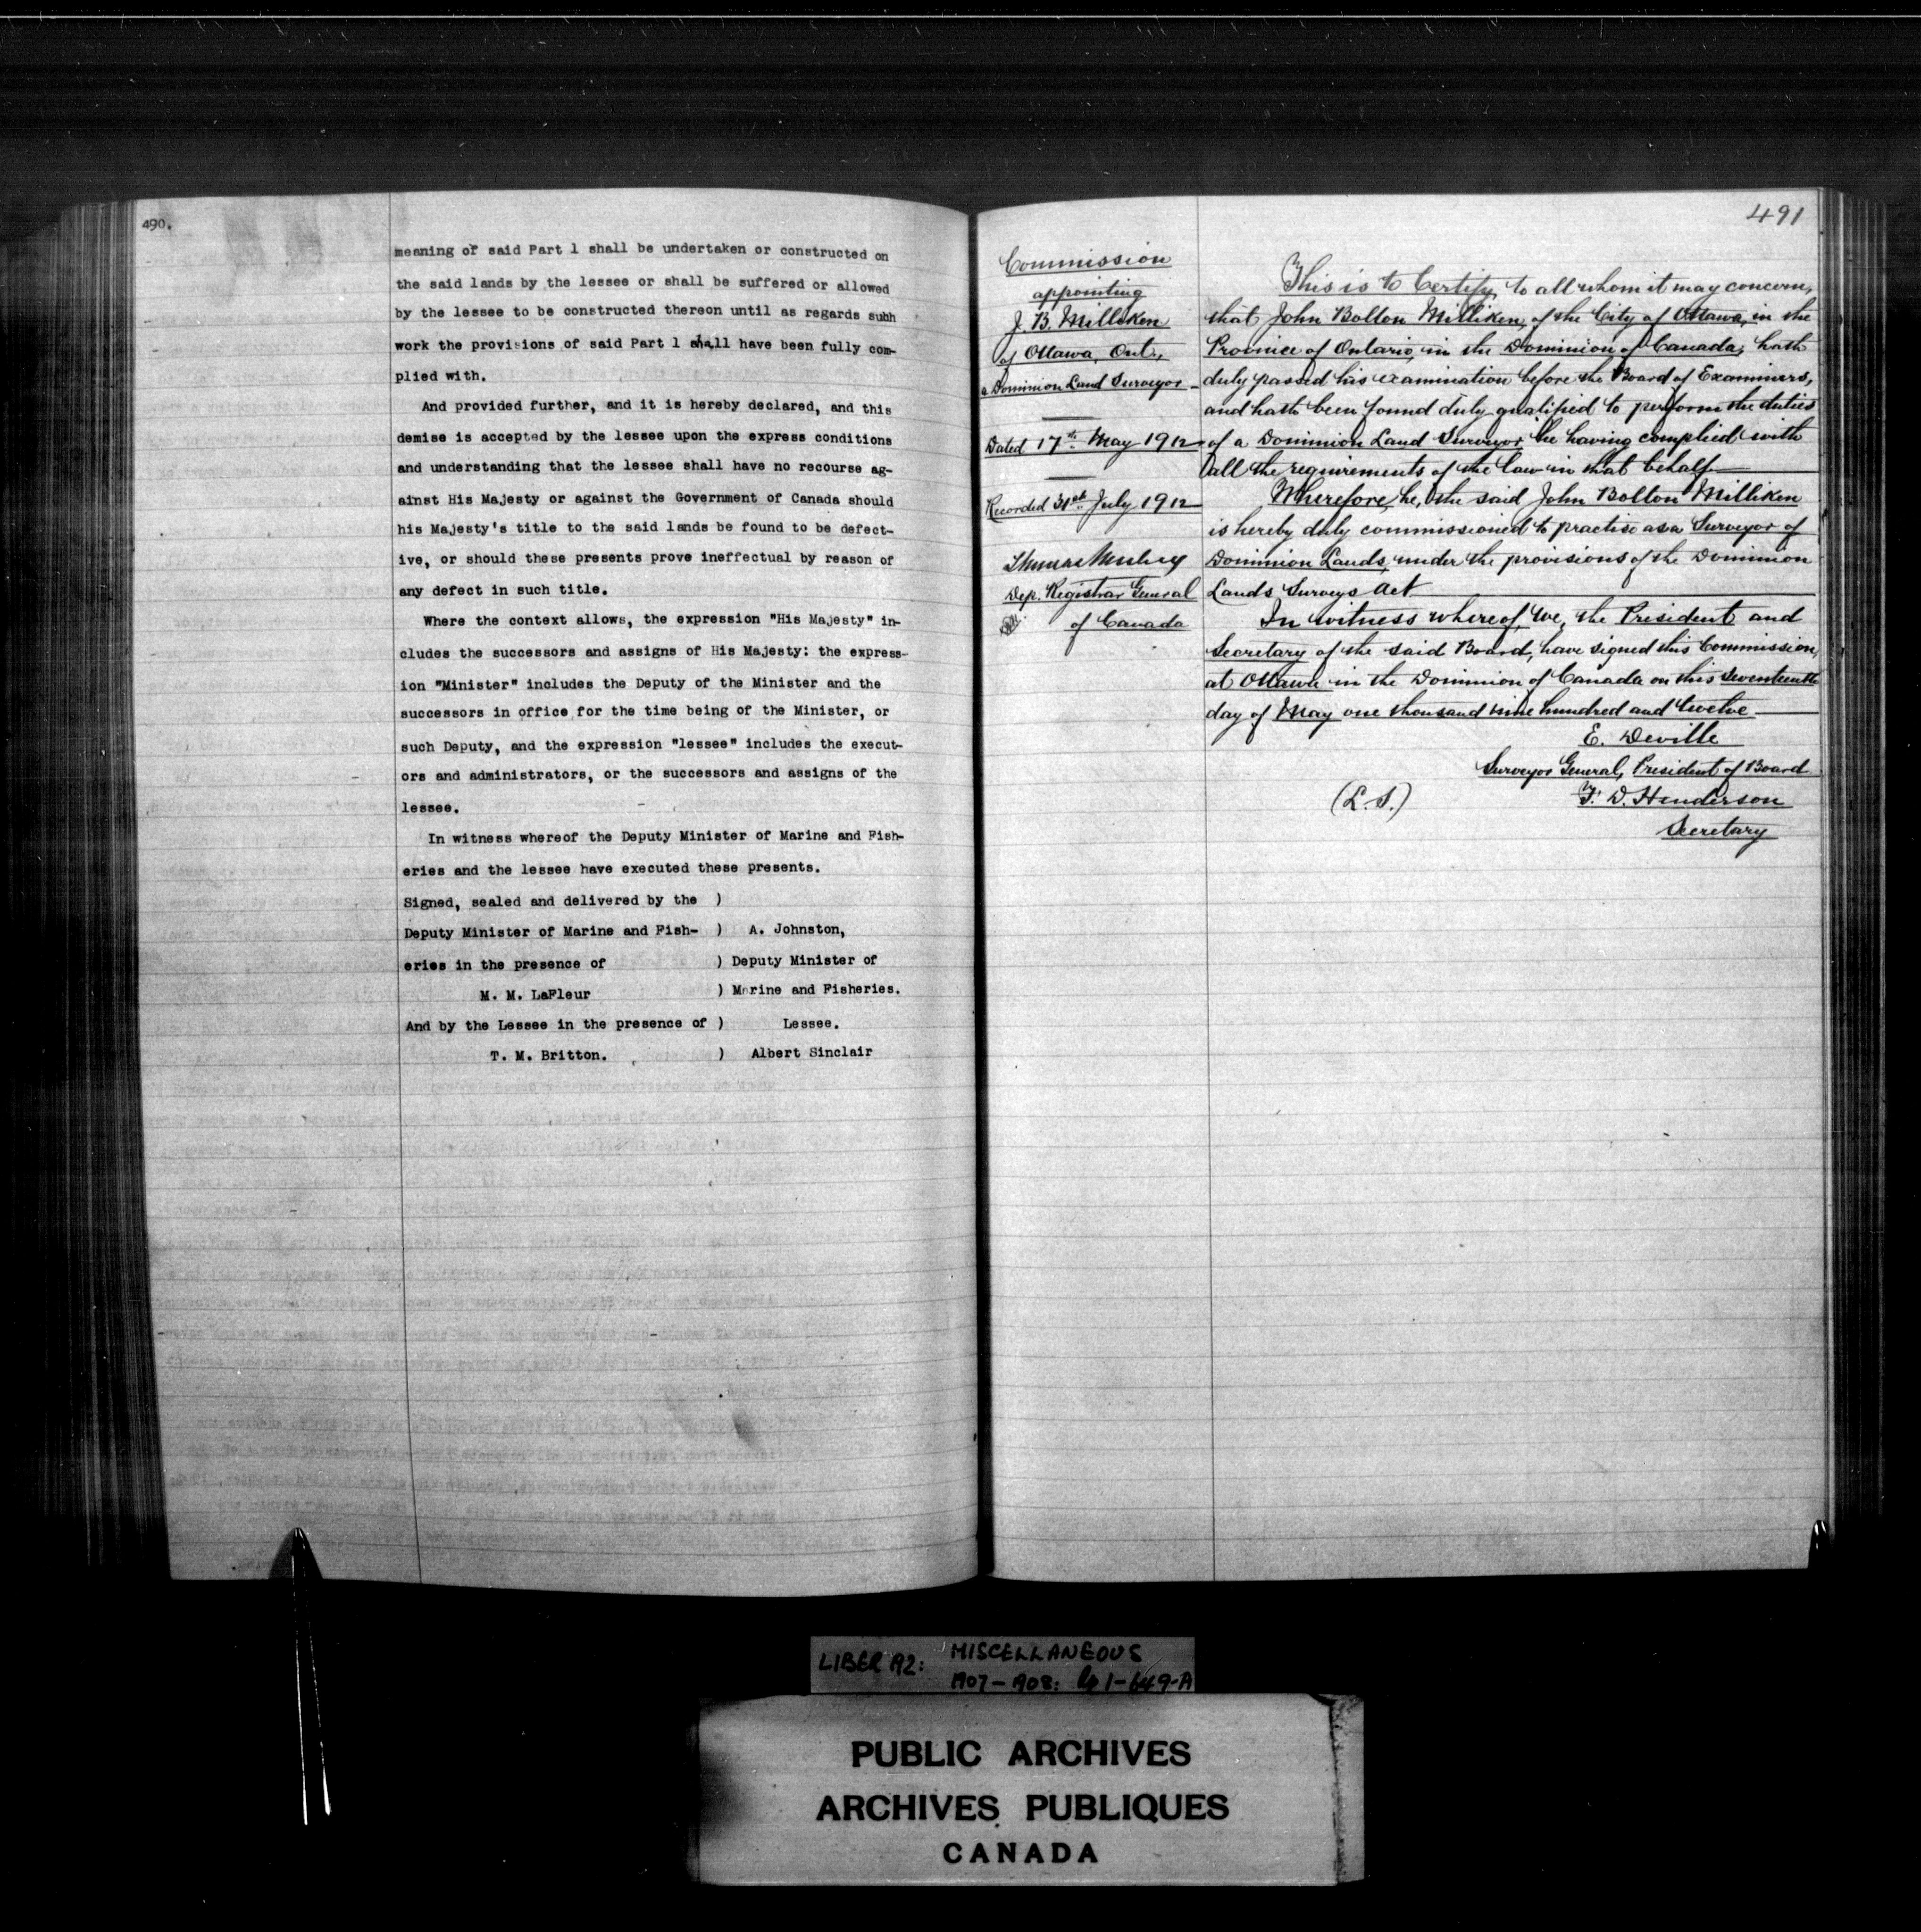 490.
meaning of said Part 1 shall be undertaken or constructed on
the said lands by the lessee or shall be suffered or allowed
by the lessee to be constructed thereon until as regards suhh
work the provisions of said Part 1 shall have been fully com-
plied with.
And provided further, and it is hereby declared, and this
demise is accepted by the lessee upon the express conditions
and understanding that the lessee shall have no recourse ag-
ainst His Majesty or against the Government of Canada should
his Majesty's title to the said lands be found to be defect-
ive, or should these presents prove ineffectual by reason of
any defect in such title.
Where the context allows, the expression "His Majesty" in-
cludes the successors and assigns of His Majesty: the express-
ion "Minister" includes the Deputy of the Minister and the
successors in office for the time being of the Minister, or
such Deputy, and the expression "lessee" includes the execut-
ors and administrators, or the successors and assigns of the
lessee.
In witness whereof the Deputy Minister of Marine and Fish-
eries and the lessee have executed these presents.
Signed, sealed and delivered by the )
Deputy Minister of Marine and Fish- ) A. Johnston,
eries in the presence of ) Deputy Minister of
M. M. LaFleur ) Marine and Fisheries.
And by the Lessee in the presence of ) Lessee.
T. M. Britton. ) Albert Sinclair
491
Commission
appointing
J. B. Milliken
of Ottawa, Ont.,
a Dominion Land Surveyor
Dated 17th May 1912
Recorded 31st July 1912
Thomas Mulvey
Dep. Registrar General
of Canada
This is to Certify to all whom it may concern,
that John Bolton Milliken, of the City of Ottawa, in the
Province of Ontario, in the Dominion of Canada, hath
duly passed his examination before the Board of Examiners,
and hath been found duly qualified to perform the duties
of a Dominion Land Surveyor he having complied with
all the requirements of the law in that behalf
Wherefore, he, the said John Bolton Milliken
is hereby duly commissioned to practise as a Surveyor of
Dominion Lands, under the provisions of the Dominion
Lands Surveys Act
In witness whereof, we, the President and
Secretary of the said Board, have signed this Commission,
at Ottawa in the Dominion of Canada on this seventeenth
day of May one thousand nine hundred and twelve
E. Deville
Surveyor General, President of Board
(L. S.) F. D. Henderson
Secretary
LIBER 192: MISCELLANEOUS
1907-1908: 1-649-A
PUBLIC ARCHIVES
ARCHIVES PUBLIQUES
CANADA